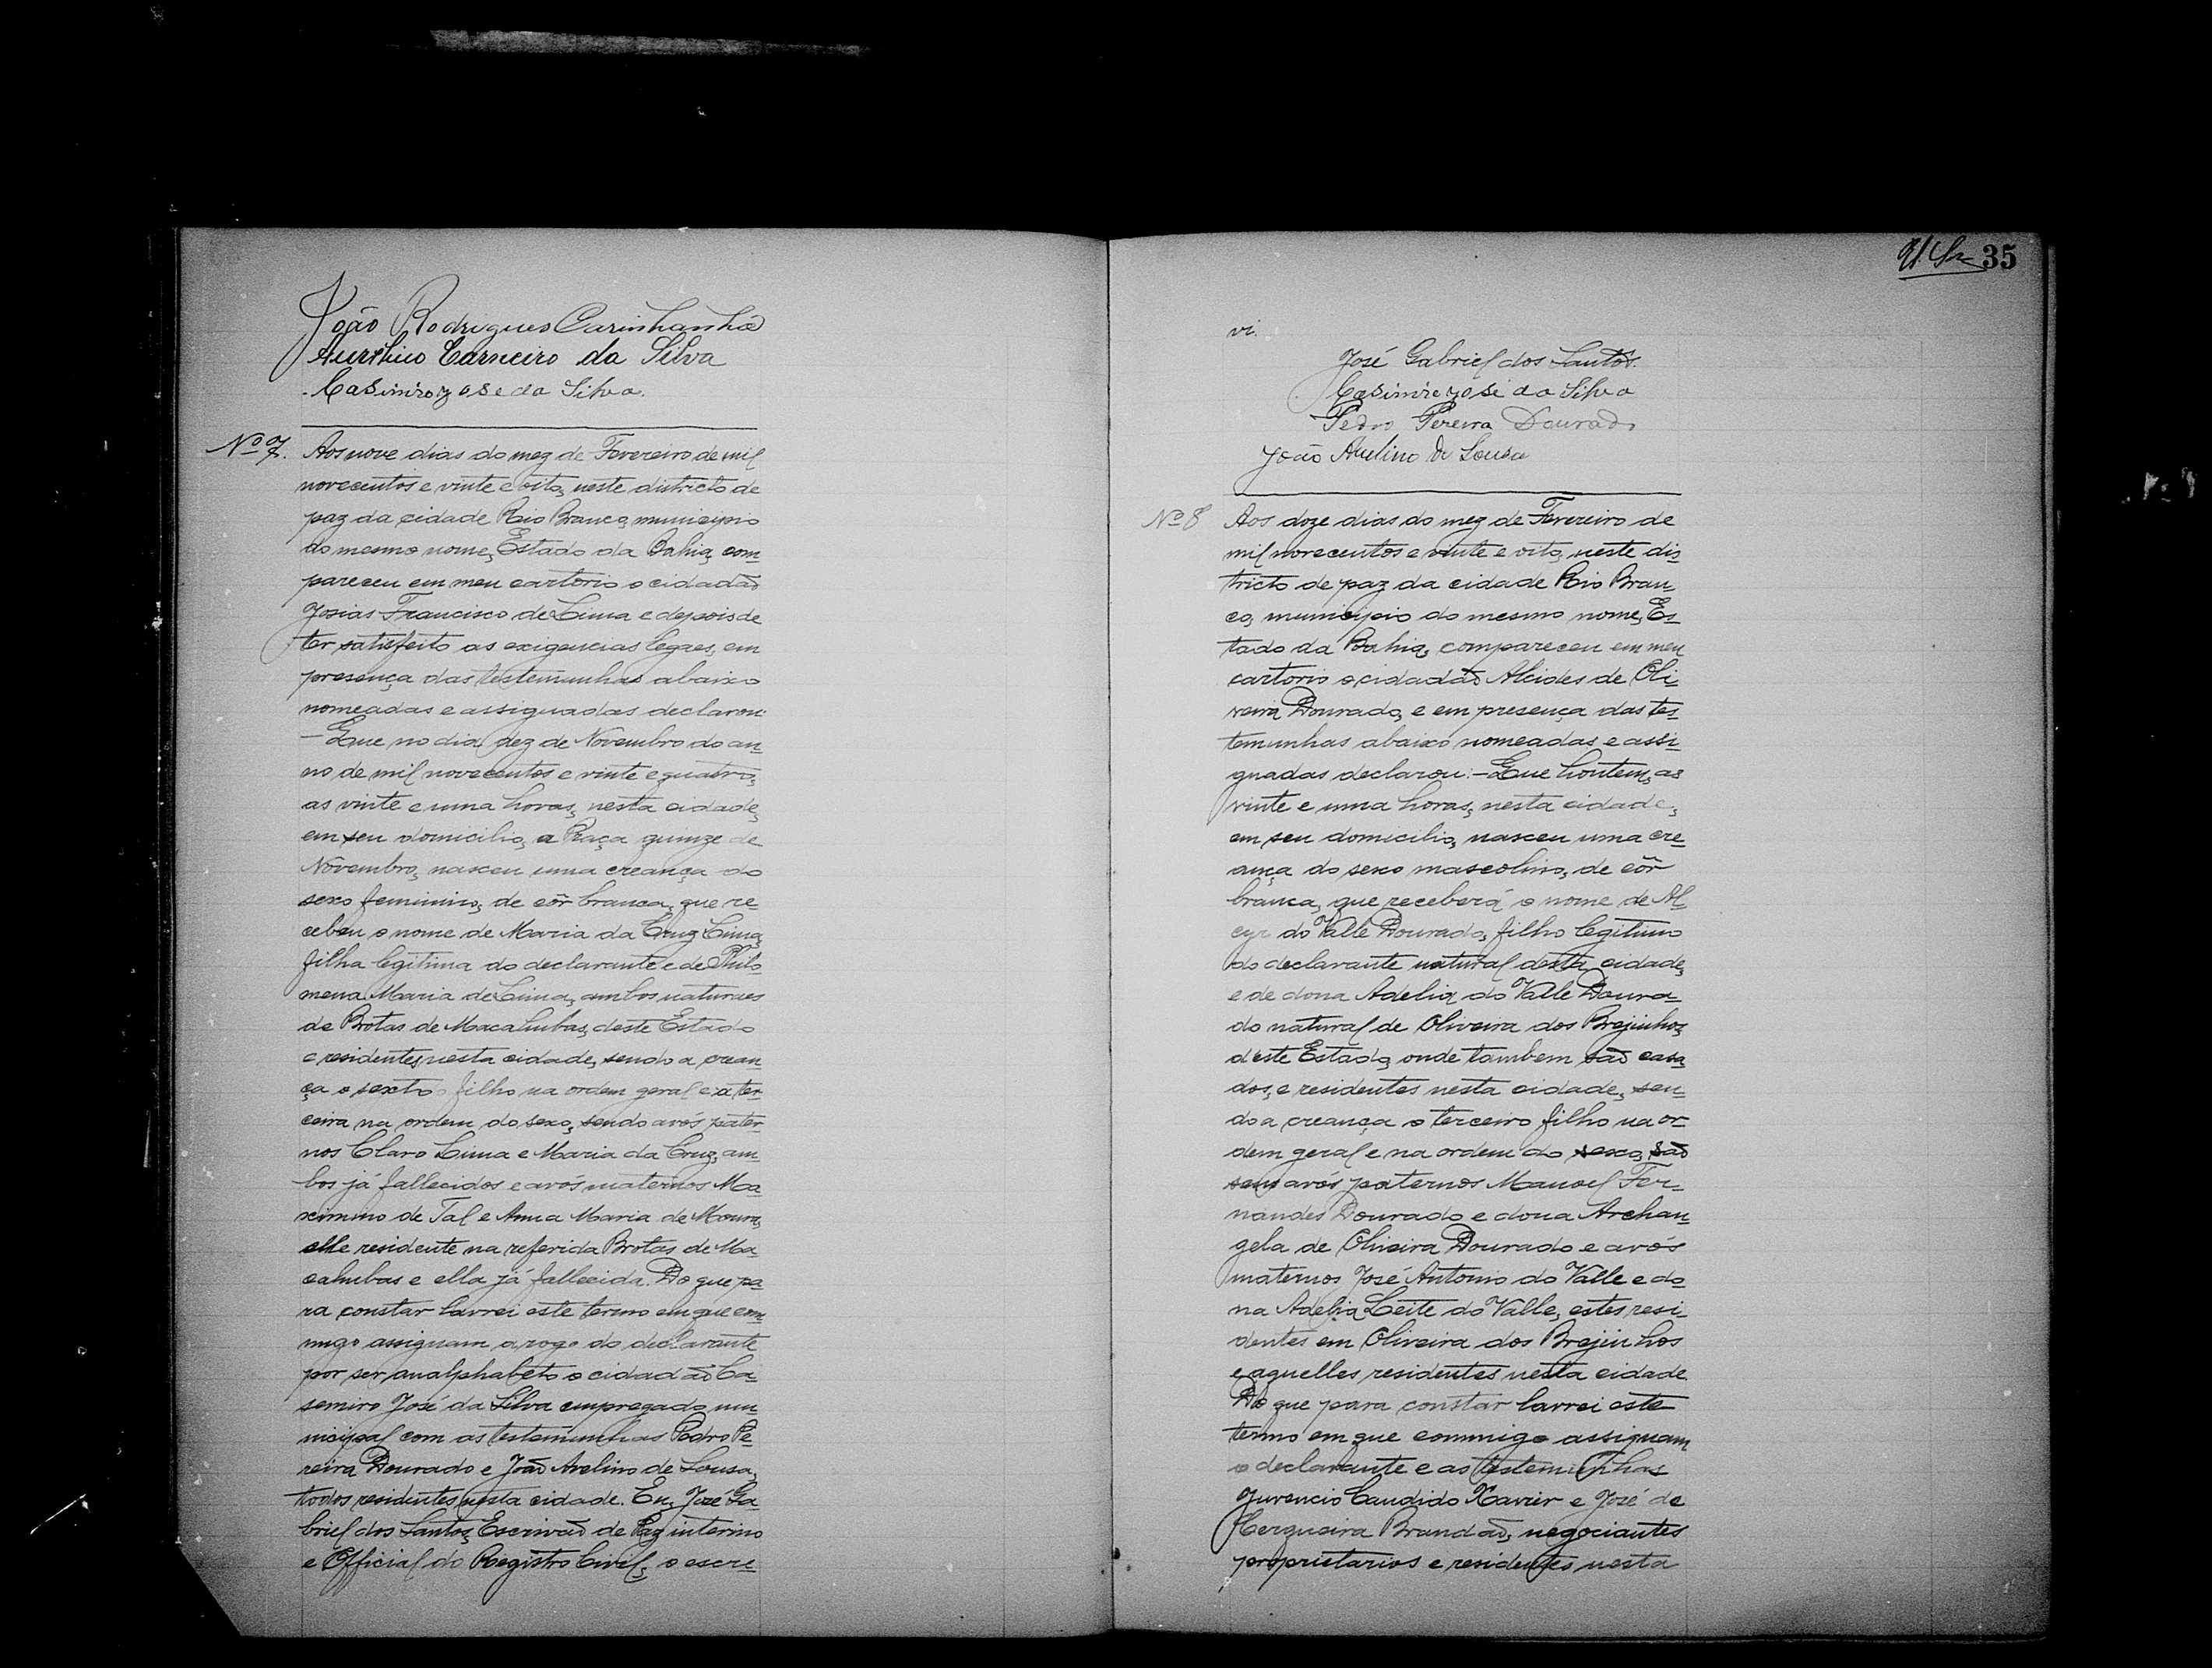 João Rodrigues Carinhanha
Aurelino Carneiro da Silva
Casimiro José da Silva.
Nº 7. Aos nove dias do mez de Fevereiro de mil
novecentos e vinte e oito, neste districto de
paz da cidade Rio Branco, municipio
do mesmo nome, Estado da Bahia, com-
pareceu em meu cartorio o cidadão
Josias Francisco de Lima e depois de
ter satisfeito as exigencias legaes, em
presença das testemunhas abaixo
nomeadas e assignadas declarou:
— Que no dia dez de Novembro do an-
no de mil novecentos e vinte e quatro,
as vinte e uma horas, nesta cidade,
em seu domicilio, a Praça quinze de
Novembro, nasceu uma creança do
sexo feminino, de côr branca, que re-
cebeu o nome de Maria da Cruz Lima,
filha legitima do declarante e de Philo-
mena Maria de Lima, ambos naturaes
de Brotas de Macahubas, deste Estado
e residentes nesta cidade, sendo a crean-
ça o sexto filho na ordem geral e a ter-
ceira na ordem do sexo, sendo avós pater-
nos Claro Lima e Maria da Cruz, am-
bos já fallecidos e avós maternos Ma-
ximino de Tal e Anna Maria de Moura,
elle residente na referida Brotas de Ma-
cahubas e ella já fallecida. Do que pa-
ra constar lavrei este termo em que com-
migo assignam a rogo do declarante
por ser analphabeto o cidadão Ca-
semiro José da Silva empregado mu-
nicipal com as testemunhas Pedro Pe-
reira Dourado e João Avelino de Sousa,
todos residentes nesta cidade. Eu, José Ga-
briel dos Santos, Escrivão de Paz interino
e Official do Registro Civil, o escre-
35
vi.
José Gabriel dos Santos.
Casimiro José da Silva
Pedro Pereira Dourado
João Avelino de Sousa
Nº 8 Aos doze dias do mez de Fevereiro de
mil novecentos e vinte e oito, neste dis-
tricto de paz da cidade Rio Bran-
co, municipio do mesmo nome, Es-
tado da Bahia, compareceu em meu
cartorio o cidadão Alcides de Oli-
veira Dourado, e em presença das tes-
temunhas abaixo nomeadas e assi-
gnadas declarou: — Que hontem, as
vinte e uma horas, nesta cidade,
em seu domicilio, nasceu uma cre-
ança do sexo mascolino, de côr
branca, que receberá o nome de Al-
cyr do Valle Dourado, filho legitimo
do declarante natural desta cidade,
e de dona Adelia do Valle Doura-
do natural de Oliveira dos Brejinhos,
deste Estado, onde tambem são casa-
dos, e residentes nesta cidade, sen-
do a creança o terceiro filho na or-
dem geral e na ordem do sexo, são
seus avós paternos Manoel Fer-
nandes Dourado e dona Archan-
gela de Oliveira Dourado e avós
maternos José Antonio do Valle e do-
na Adelia Leite do Valle, estes resi-
dentes em Oliveira dos Brejinhos
e aquelles residentes nesta cidade.
Do que para constar lavrei este
termo em que commigo assignam
o declarante e as testemunhas
Juvencio Candido Xavier e José de
Cerqueira Brandão, negociantes
proprietarios e residentes nesta